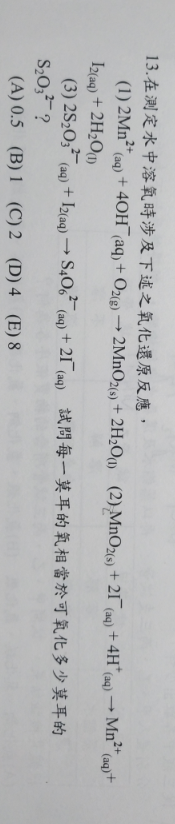 13.在測定水中溶氧時涉及下述之氧化還原反應，
(1) 2Mn²⁺(aq) + 4OH⁻(aq) + O₂(g) → 2MnO₂(s) + 2H₂O(l) (2) MnO₂(s) + 2I⁻(aq) + 4H⁺(aq) → Mn²⁺(aq) +
I₂(aq) + 2H₂O(l)
(3) 2S₂O₃²⁻(aq) + I₂(aq) → S₄O₆²⁻(aq) + 2I⁻(aq) 試問每一莫耳的氧相當於可氧化多少莫耳的
S₂O₃²⁻？
(A) 0.5 (B) 1 (C) 2 (D) 4 (E) 8